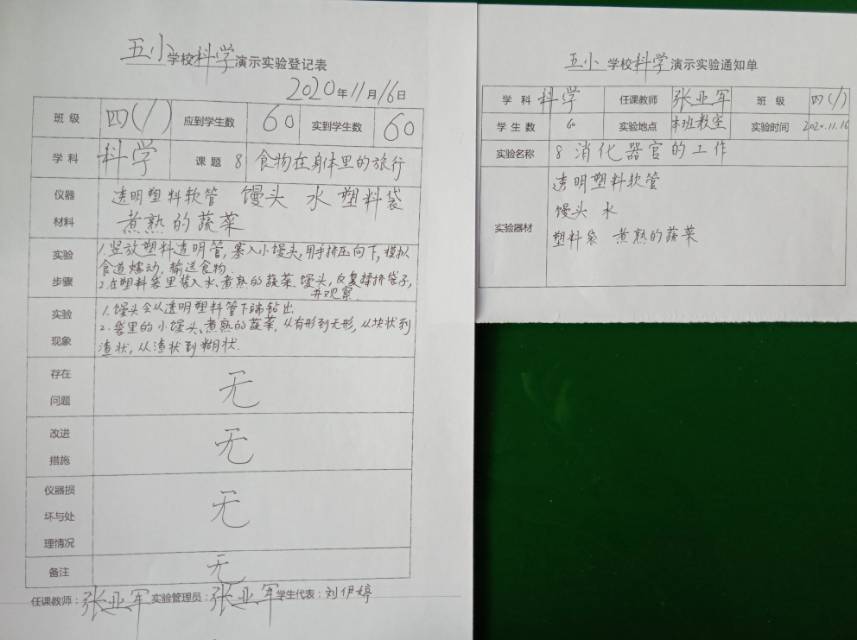 五小学校科学演示实验登记表
2020年11月16日
班级 四(1) 应到学生数 60 实到学生数 60
学科 科学 课题 8 食物在身体里的旅行
仪器材料 透明塑料软管 馒头 水 塑料袋
煮熟的蔬菜
实验步骤 1.竖放塑料透明管,塞入小馒头,用手挤压向下,模拟
食道蠕动,输送食物.
2.在塑料袋里装入水、煮熟的蔬菜、馒头,反复揉挤袋子,
并观察.
实验现象 1.馒头会从透明塑料管下端钻出
2.袋里的小馒头、煮熟的蔬菜,从有形到无形,从块状到
渣状,从渣状到糊状.
存在问题 无
改进措施 无
仪器损坏与处理情况 无
备注 无
任课教师:张亚军 实验管理员:张亚军 学生代表:刘伊婷
五小学校科学演示实验通知单
学科 科学 任课教师 张亚军 班级 四(1)
学生数 60 实验地点 本班教室 实验时间 2020.11.16
实验名称 8 消化器官的工作
实验器材 透明塑料软管
馒头 水
塑料袋 煮熟的蔬菜